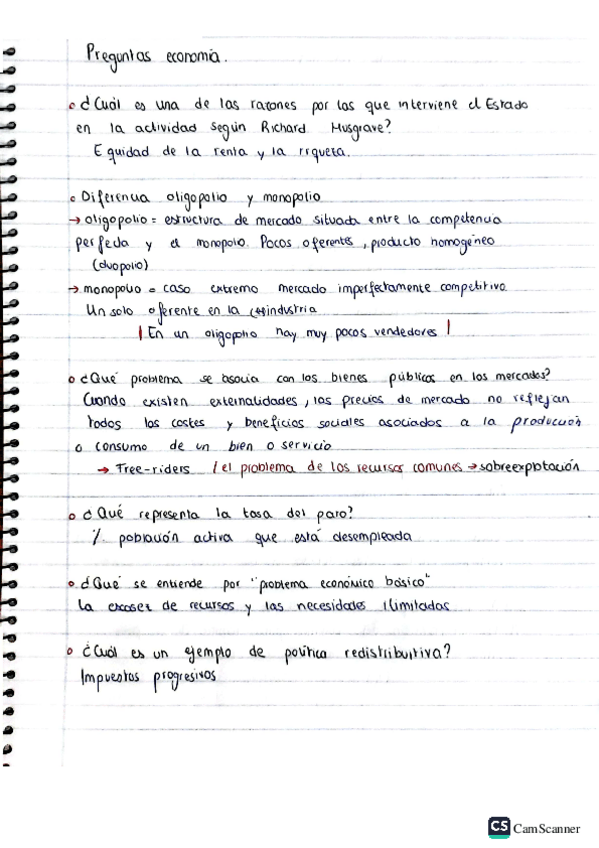 Preguntas economía.
¿Cuál es una de las razones por las que interviene el Estado
en la actividad según Richard Musgrave?
Equidad de la renta y la riqueza.
Diferencia oligopolio y monopolio
→ oligopolio = estructura de mercado situada entre la competencia
perfecta y el monopolio. Pocos oferentes, producto homogéneo
(duopolio)
→ monopolio = caso extremo mercado imperfectamente competitivo
Un solo oferente en la industria
¡En un oligopolio hay muy pocos vendedores!
¿Qué problema se asocia con los bienes públicos en los mercados?
Cuando existen externalidades, los precios de mercado no reflejan
todos los costes y beneficios sociales asociados a la producción
o consumo de un bien o servicio
→ Free-riders / el problema de los recursos comunes → sobreexplotación
¿Qué representa la tasa del paro?
% población activa que está desempleada
¿Qué se entiende por "problema económico básico"
la escasez de recursos y las necesidades ilimitadas
¿Cuál es un ejemplo de política redistributiva?
Impuestos progresivos
CS CamScanner